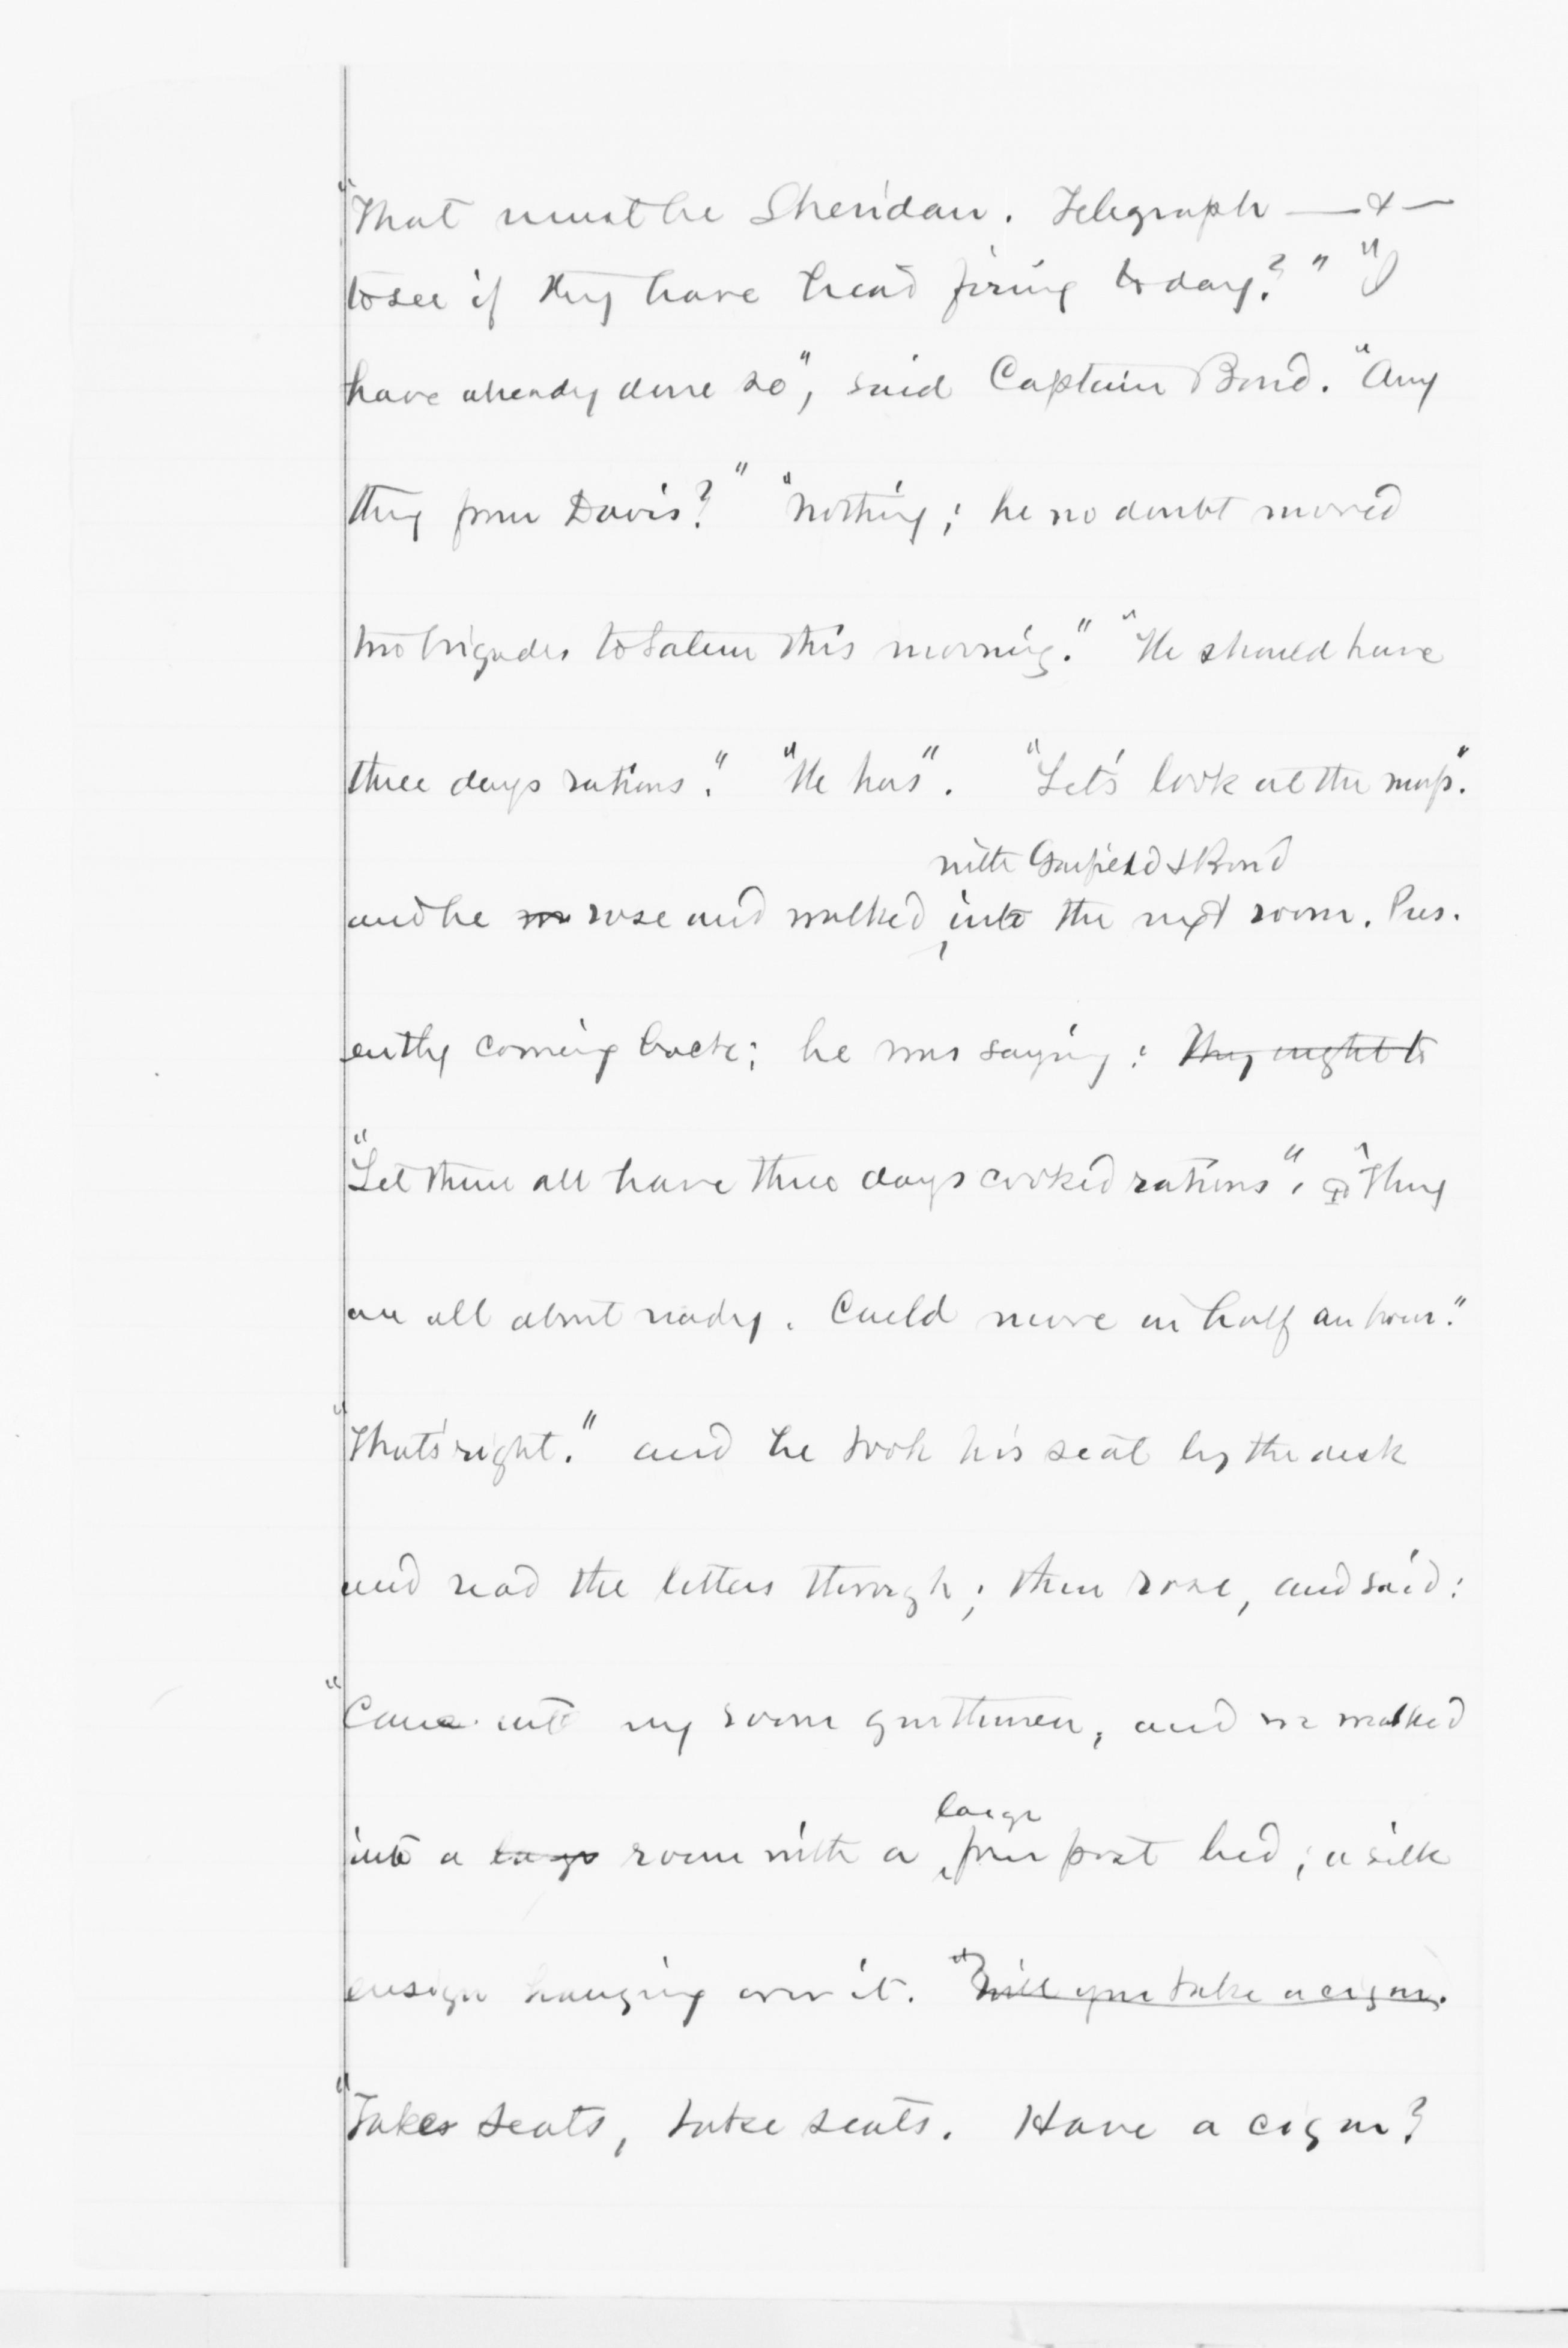 "That must be Sheridan. Telegraph — & —
to see if they have heard firing to day?" "I
have already done so", said Captain Bond. "Any
thing from Davis?" "Nothing; he no doubt moved
two brigades to Salem this morning." "He should have
three days rations." "He has". "Let's look at the map".
with Garfield & Bond
and he rose and walked into the next room. Pres-
ently coming back; he was saying: They ought to
"Let them all have three days cooked rations". "They
are all about ready. Could move in half an hour."
"That's right." and he took his seat by the desk
and read the letters through; then rose, and said:
"Come into my room gentlemen, and we walked
large
into a large room with a four post bed, a silk
ensign hanging over it. "Will you take a cigar.
"Take seats, take seats. Have a cigar?